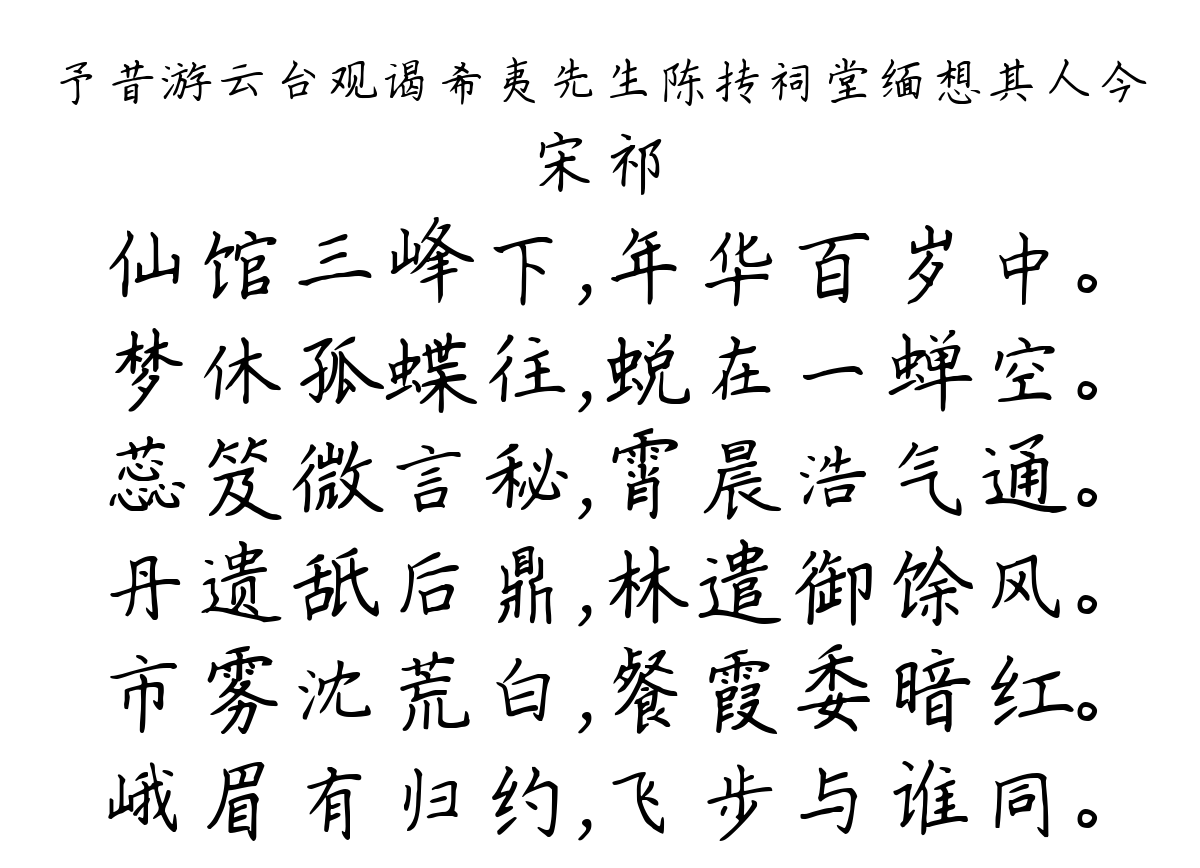 予昔游云台观谒希夷先生陈抟祠堂缅想其人今
宋祁
仙馆三峰下,年华百岁中。
梦休孤蝶往,蜕在一蝉空。
蕊笈微言秘,霄晨浩气通。
丹遗舐后鼎,林遣御馀风。
市雾沈荒白,餐霞委暗红。
峨眉有归约,飞步与谁同。